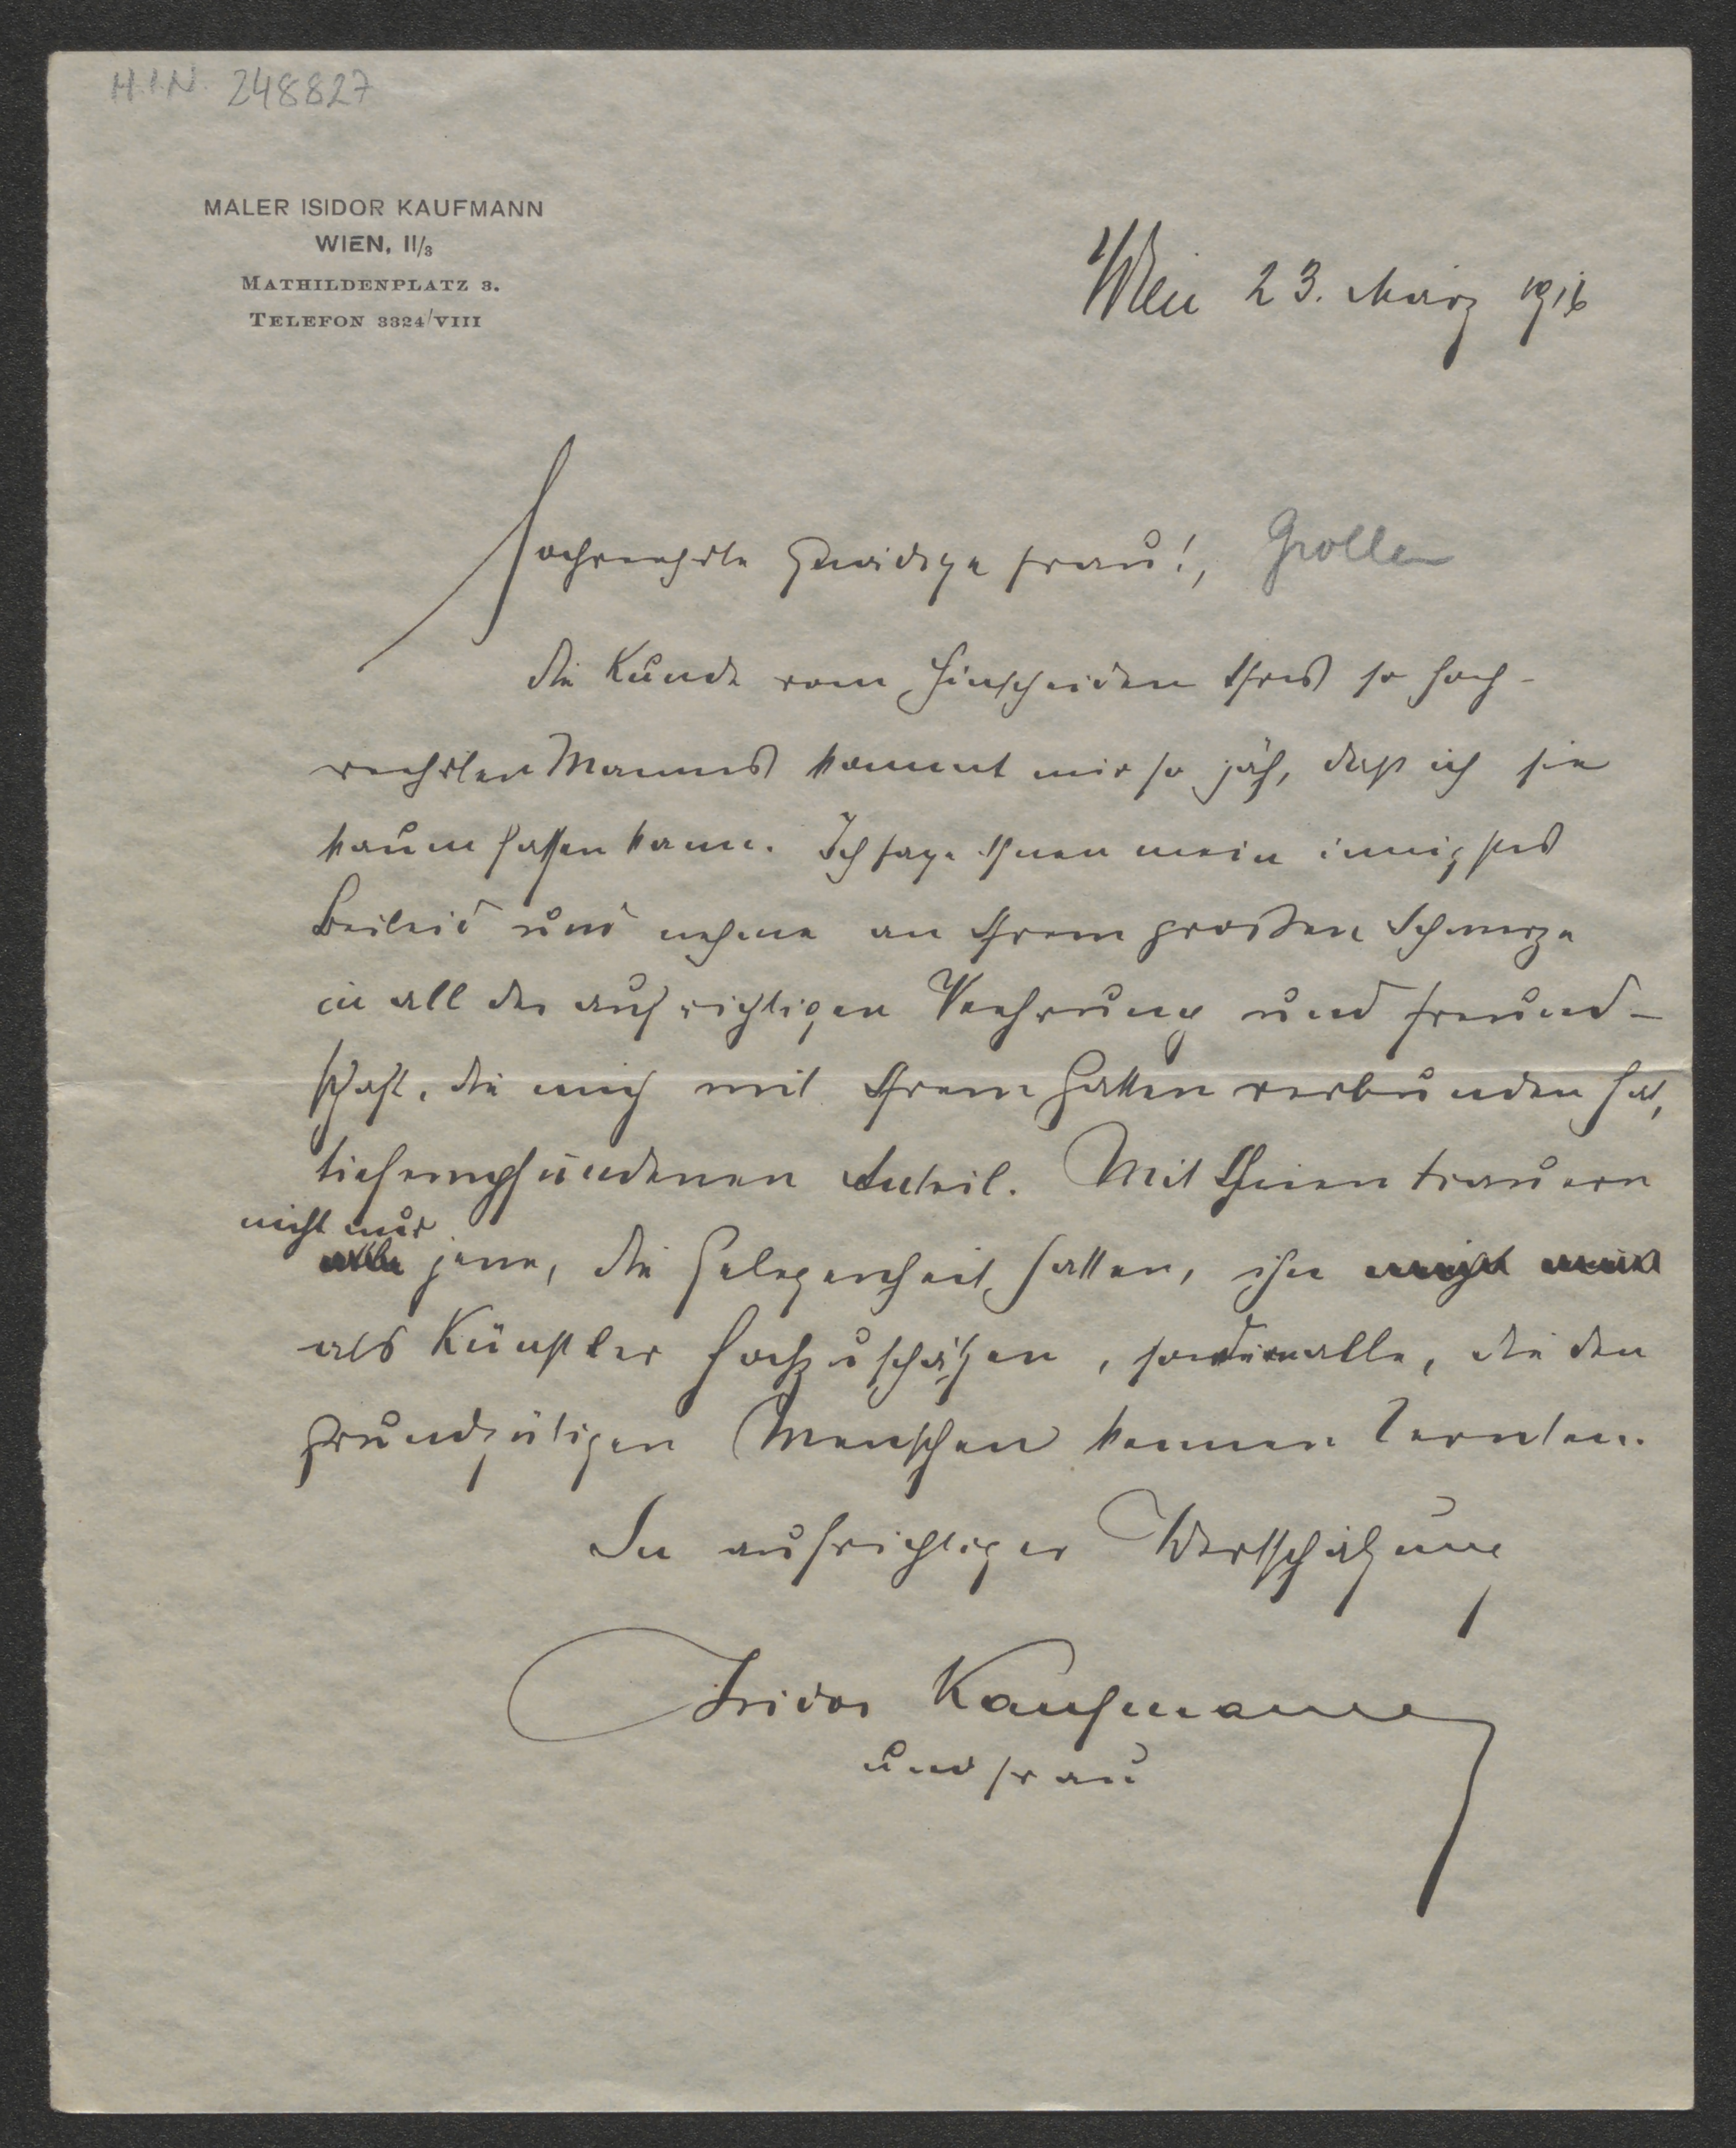 H.I.N. 248827
MALER ISIDOR KAUFMANN
WIEN, II/3
MATHILDENPLATZ 3.
TELEFON 3324/VIII
Wien 23. März 1916
Hochverehrte Gnädige Frau!, Groller
die Kunde vom Hinscheiden Ihres so hoch-
verehrten Mannes kommt mir so jäh, daß ich sie
kaum fassen kann. Ich sage Ihnen mein innigstes
Beileid und nehme an Ihrem großen Schmerze
in all der aufrichtigen Verehrung und Freund-
schaft, die mich mit Ihrem Gatten verbunden hat,
tiefempfundenen Anteil. Mit Ihnen trauern
nicht nur
alle jene, die Gelegenheit hatten, ihn nicht nur
als Künstler hochzuschätzen, sondern alle, die den
grundgütigen Menschen kennen lernten.
In aufrichtiger Wertschätzung
Isidor Kaufmann
und Frau